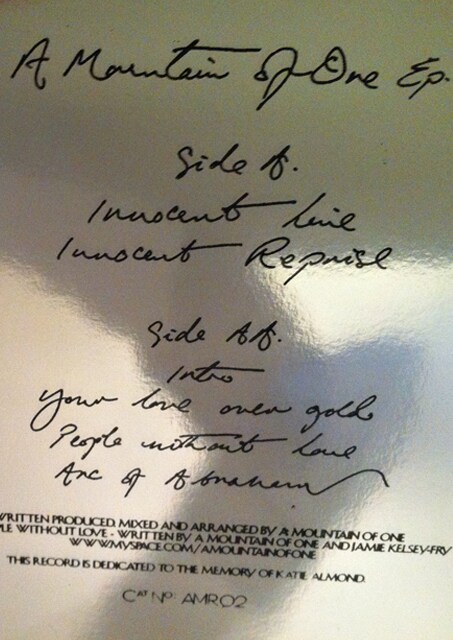 A Mountain of One Ep.
Side A.
Innocent Line
Innocent Reprise
Side AA.
Intro
Your love over gold
People without love
Arc of Abraham
WRITTEN PRODUCED, MIXED AND ARRANGED BY A MOUNTAIN OF ONE
PLE WITHOUT LOVE - WRITTEN BY A MOUNTAIN OF ONE AND JAMIE KELSEY-FRY
WWW.MYSPACE.COM/AMOUNTAINOFONE
THIS RECORD IS DEDICATED TO THE MEMORY OF KATIE ALMOND.
CAT NO: AMR02